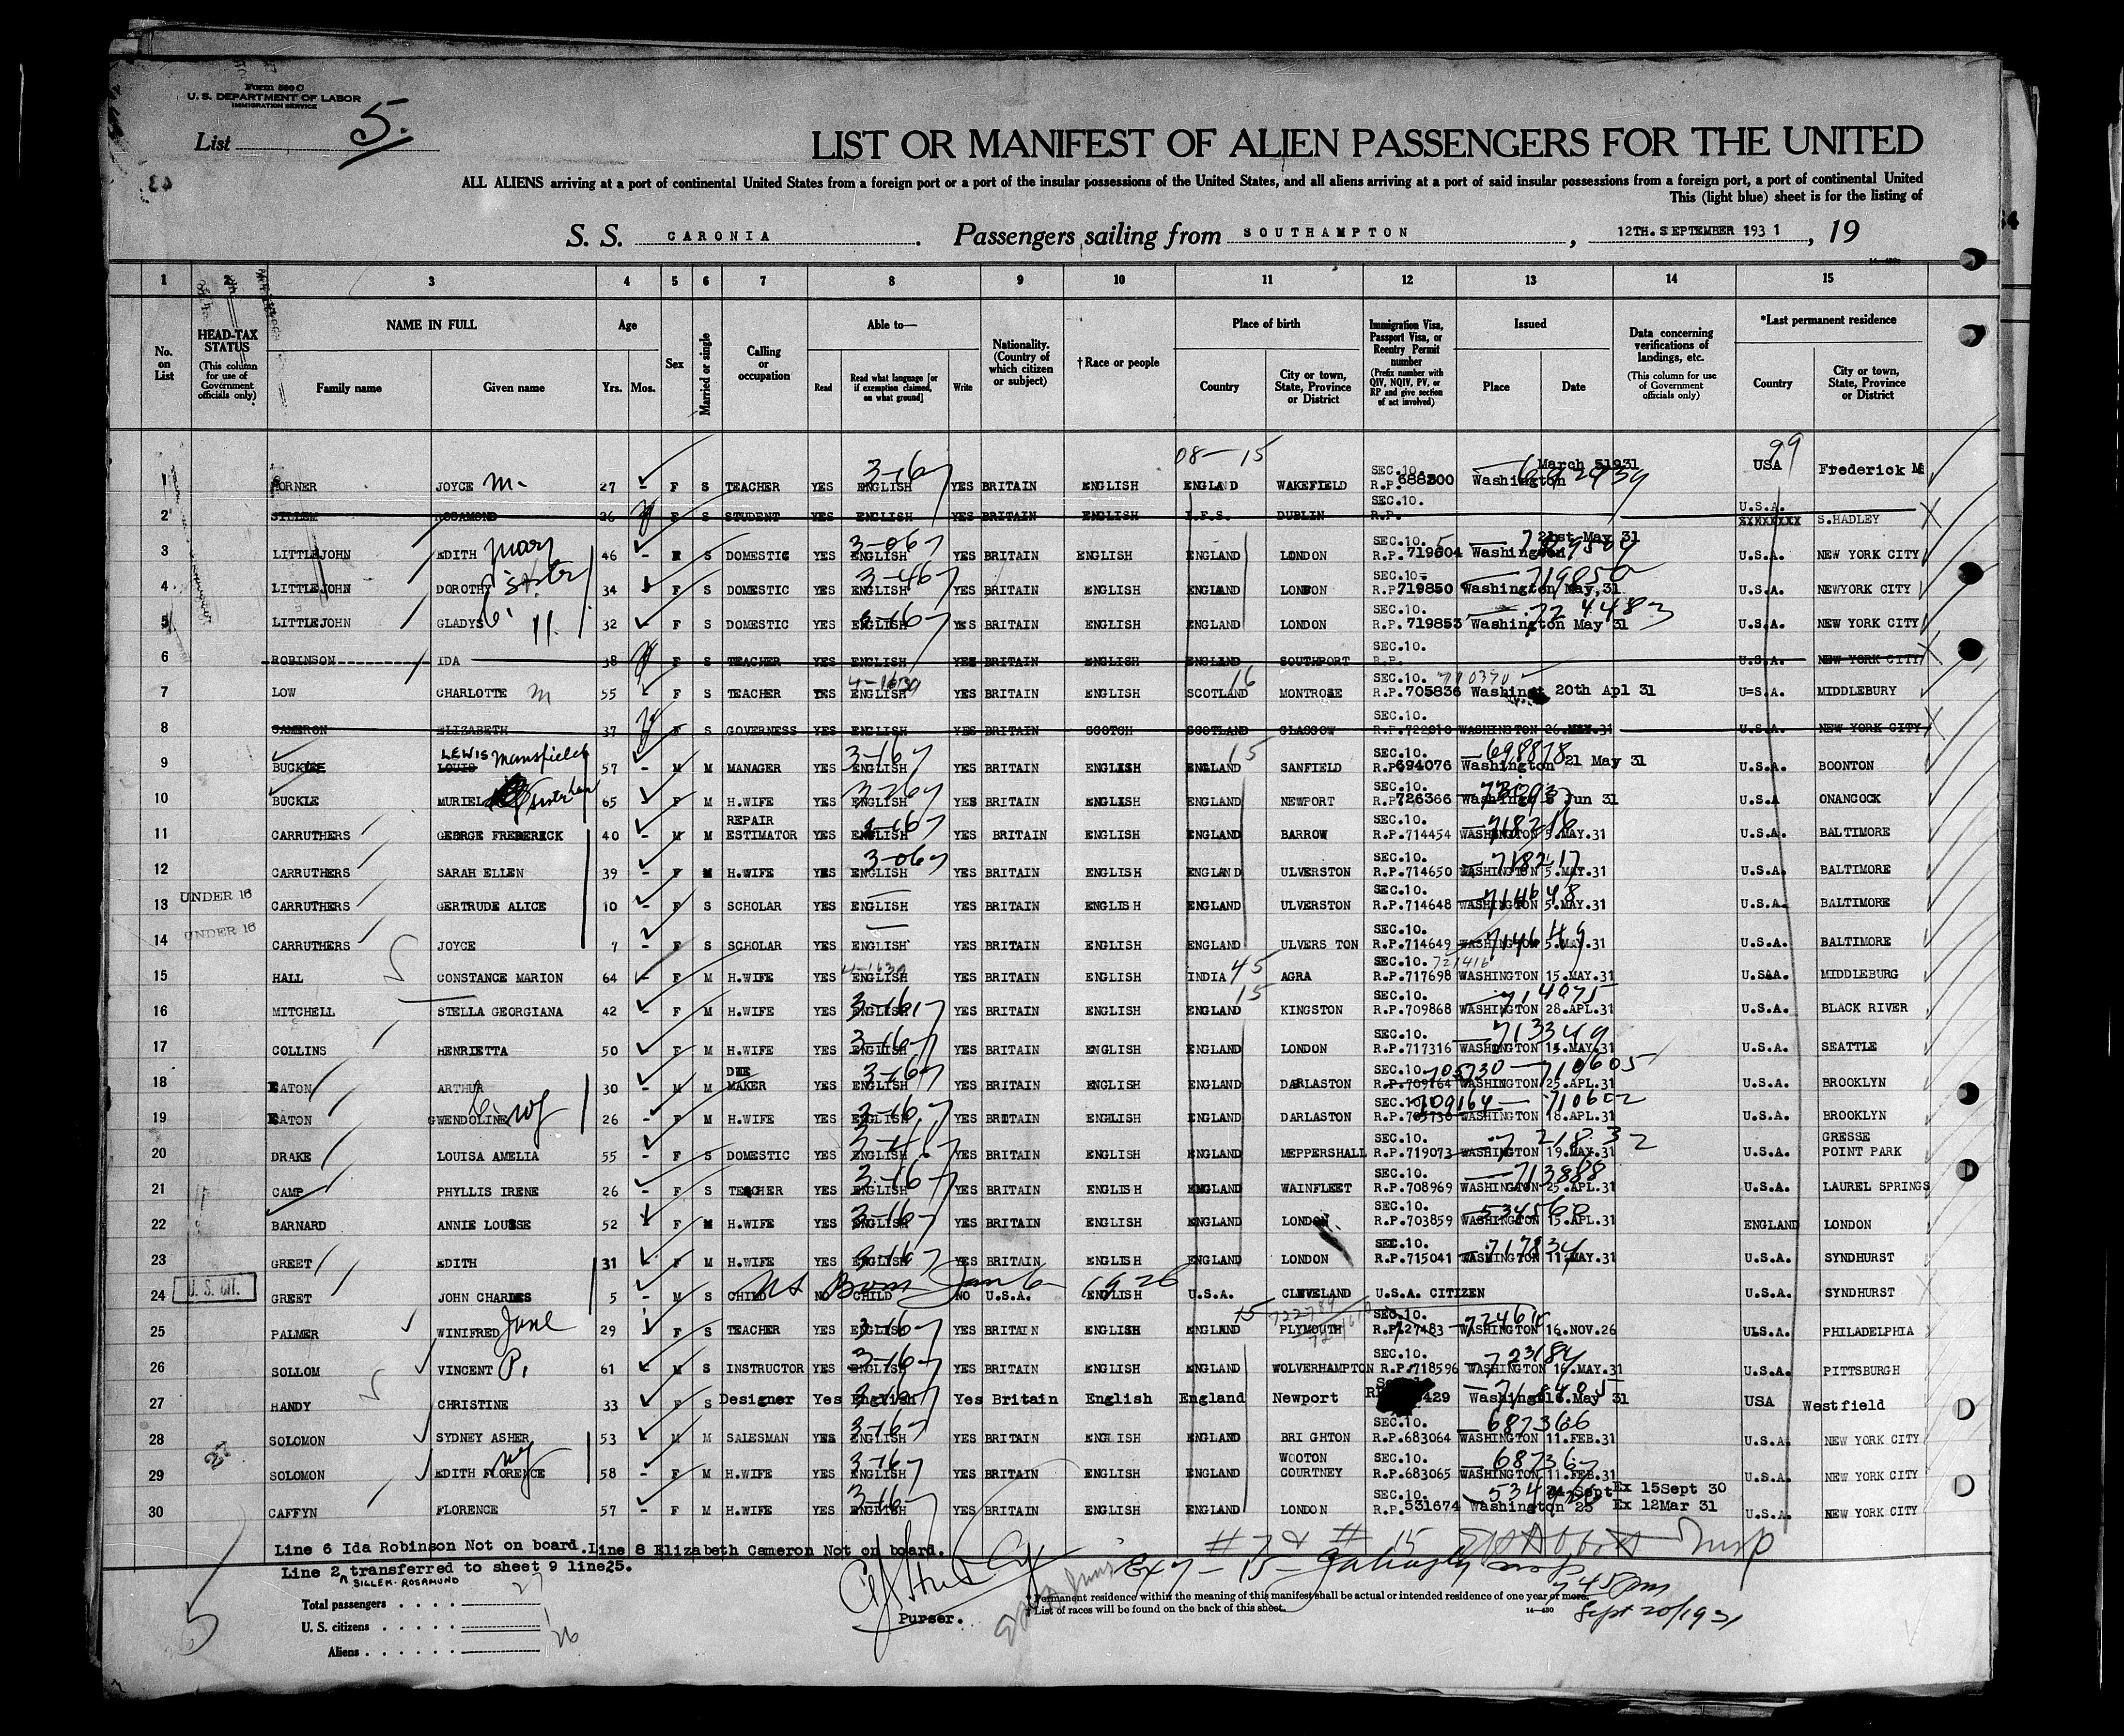 Form 500 C
U. S. DEPARTMENT OF LABOR
IMMIGRATION SERVICE
List 5.
LIST OR MANIFEST OF ALIEN PASSENGERS FOR THE UNITED
ALL ALIENS arriving at a port of continental United States from a foreign port or a port of the insular possessions of the United States, and all aliens arriving at a port of said insular possessions from a foreign port, a port of continental United
This (light blue) sheet is for the listing of
S. S. CARONIA. Passengers sailing from SOUTHAMPTON, 12TH. SEPTEMBER 1931, 19
1 2 3 4 5 6 7 8 9 10 11 12 13 14 15
No. on List
HEAD-TAX STATUS (This column for use of Government officials only)
NAME IN FULL
Family name Given name
Age
Yrs. Mos.
Sex
Married or single
Calling or occupation
Able to—
Read Read what language [or if exemption claimed, on what ground] Write
Nationality. (Country of which citizen or subject)
†Race or people
Place of birth
Country City or town, State, Province or District
Immigration Visa, Passport Visa, or Reentry Permit number (Prefix number with QIV, NQIV, PV, or RP and give section of act involved)
Issued
Place Date
Data concerning verifications of landings, etc. (This column for use of Government officials only)
*Last permanent residence
Country City or town, State, Province or District
08-15 99
1 HORNER JOYCE M. 27 F S TEACHER YES ENGLISH YES BRITAIN ENGLISH ENGLAND WAKEFIELD SEC.10. R.P. Washington March 51931 USA Frederick
2 SILLEM ROSAMOND 26 F S STUDENT YES ENGLISH YES BRITAIN ENGLISH I.F.S. DUBLIN SEC.10. R.P. U.S.A. S.HADLEY
3 LITTLEJOHN EDITH Mary 46 - F S DOMESTIC YES ENGLISH YES BRITAIN ENGLISH ENGLAND LONDON SEC.10. R.P.719604 Washington 21st May 31 U.S.A. NEW YORK CITY
4 LITTLEJOHN DOROTHY sister 34 F S DOMESTIC YES ENGLISH YES BRITAIN ENGLISH ENGLAND LONDON SEC.10. R.P.719850 Washington May,31. 719850 U.S.A. NEWYORK CITY
5 LITTLEJOHN GLADYS 11. 32 F S DOMESTIC YES ENGLISH YES BRITAIN ENGLISH ENGLAND LONDON SEC.10. R.P.719853 Washington May 31 724483 U.S.A. NEW YORK CITY
6 ROBINSON IDA 38 F S TEACHER YES ENGLISH YES BRITAIN ENGLISH ENGLAND SOUTHPORT SEC.10. R.P. U.S.A. NEW YORK CITY
7 LOW CHARLOTTE M 55 F S TEACHER YES ENGLISH YES BRITAIN ENGLISH SCOTLAND 16 MONTROSE SEC.10. 710370 R.P.705836 Washingt 20th Apl 31 U=S.A. MIDDLEBURY
8 CAMERON ELIZABETH 37 F S GOVERNESS YES ENGLISH YES BRITAIN SCOTCH SCOTLAND GLASGOW SEC.10. R.P.722818 WASHINGTON 26.MAY.31 U.S.A. NEW YORK CITY
9 BUCKLE LEWIS Mansfield LOUIS 57 - M M MANAGER YES ENGLISH YES BRITAIN ENGLISH ENGLAND 15 SANFIELD SEC.10. R.P.694076 Washington 21 May 31 698878 U.S.A. BOONTON
10 BUCKLE MURIEL 65 F M H.WIFE YES ENGLISH YES BRITAIN ENGLISH ENGLAND NEWPORT SEC.10. R.P.726366 Washingt Jun 31 U.S.A ONANCOCK
11 CARRUTHERS GEORGE FREDERICK 40 - M M REPAIR ESTIMATOR YES ENGLISH YES BRITAIN ENGLISH ENGLAND BARROW SEC.10. R.P.714454 WASHINGTON 5.MAY.31 718216 U.S.A. BALTIMORE
12 CARRUTHERS SARAH ELLEN 39 - F M H.WIFE YES ENGLISH YES BRITAIN ENGLISH ENGLAND ULVERSTON SEC.10. R.P.714650 WASHINGTON 5.MAY.31 718217 U.S.A. BALTIMORE
13 UNDER 16 CARRUTHERS GERTRUDE ALICE 10 - F S SCHOLAR YES ENGLISH YES BRITAIN ENGLISH ENGLAND ULVERSTON SEC.10. R.P.714648 WASHINGTON 5.MAY.31 714648 U.S.A. BALTIMORE
14 UNDER 16 CARRUTHERS JOYCE 7 - F S SCHOLAR YES ENGLISH YES BRITAIN ENGLISH ENGLAND ULVERS TON SEC.10. R.P.714649 WASHINGTON 5.MAY.31 714649 U.S.A. BALTIMORE
15 HALL CONSTANCE MARION 64 - F M H.WIFE YES ENGLISH YES BRITAIN ENGLISH INDIA 45 AGRA SEC.10. 721416 R.P.717698 WASHINGTON 15.MAY.31 U.S.A. MIDDLEBURG
16 MITCHELL STELLA GEORGIANA 42 - F M H.WIFE YES ENGLISH YES BRITAIN ENGLISH ENGLAND 15 KINGSTON SEC.10. R.P.709868 WASHINGTON 28.APL.31 714075 U.S.A. BLACK RIVER
17 COLLINS HENRIETTA 50 - F M H.WIFE YES ENGLISH YES BRITAIN ENGLISH ENGLAND LONDON SEC.10. R.P.717316 WASHINGTON MAY.31 713349 U.S.A. SEATTLE
18 EATON ARTHUR 30 - M M DIE MAKER YES ENGLISH YES BRITAIN ENGLISH ENGLAND DARLASTON SEC.10. 705730 - 710605 R.P.709164 WASHINGTON 25.APL.31 U.S.A. BROOKLYN
19 EATON GWENDOLINE wf 26 - F M H.WIFE YES ENGLISH YES BRITAIN ENGLISH ENGLAND DARLASTON SEC.10. 709164 - 710602 R.P.705730 WASHINGTON 18.APL.31 U.S.A. BROOKLYN
20 DRAKE LOUISA AMELIA 55 - F S DOMESTIC YES ENGLISH YES BRITAIN ENGLISH ENGLAND MEPPERSHALL SEC.10. R.P.719073 WASHINGTON 19.MAY.31 721832 U.S.A. GRESSE POINT PARK
21 CAMP PHYLLIS IRENE 26 - F S TEACHER YES ENGLISH YES BRITAIN ENGLISH ENGLAND WAINFLEET SEC.10. R.P.708969 WASHINGTON 25.APL.31 713888 U.S.A. LAUREL SPRINGS
22 BARNARD ANNIE LOUISE 52 F M H.WIFE YES ENGLISH YES BRITAIN ENGLISH ENGLAND LONDON SEC.10. R.P.703859 WASHINGTON 15.APL.31 ENGLAND LONDON
23 GREET EDITH 31 F M H.WIFE YES ENGLISH YES BRITAIN ENGLISH ENGLAND LONDON SEC.10. R.P.715041 WASHINGTON 11.MAY.31 717834 U.S.A. SYNDHURST
24 U. S. CIT. GREET JOHN CHARLES 5 - M S CHILD NO CHILD NO U.S.A. ENGLISH U.S.A. CLEVELAND U.S.A. CITIZEN U.S.A. SYNDHURST
Born Jan 1926
25 PALMER WINIFRED Jane 29 F S TEACHER YES ENGLISH YES BRITAIN ENGLISH ENGLAND 15 PLYMOUTH SEC.10. R.P.727483 WASHINGTON 16.NOV.26 U.S.A. PHILADELPHIA
26 SOLLOM VINCENT P. 61 M S INSTRUCTOR YES ENGLISH YES BRITAIN ENGLISH ENGLAND WOLVERHAMPTON SEC.10. R.P.718596 WASHINGTON 16.MAY.31 723184 U.S.A. PITTSBURGH
27 HANDY CHRISTINE 33 F S Designer Yes English Yes Britain English England Newport 429 Washington May 31 USA Westfield
28 SOLOMON SYDNEY ASHER 53 M M SALESMAN YES ENGLISH YES BRITAIN ENGLISH ENGLAND BRIGHTON SEC.10. R.P.683064 WASHINGTON 11.FEB.31 687366 U.S.A. NEW YORK CITY
29 SOLOMON EDITH FLORENCE wf 58 - F M H.WIFE YES ENGLISH YES BRITAIN ENGLISH ENGLAND WOOTON COURTNEY SEC.10. R.P.683065 WASHINGTON 11.FEB.31 687367 U.S.A. NEW YORK CITY
30 CAFFYN FLORENCE 57 - F M H.WIFE YES ENGLISH YES BRITAIN ENGLISH ENGLAND LONDON SEC.10. R.P.531674 Washington 25 Sept Ex 15Sept 30 Ex 12Mar 31 U.S.A. NEW YORK CITY
Line 6 Ida Robinson Not on board. Line 8 Elizabeth Cameron Not on board.
# 7 & # 15
Line 2 transferred to sheet 9 line25.
SILLEM-ROSAMUND
Purser.
Total passengers 27
U. S. citizens
Aliens 26
* Permanent residence within the meaning of this manifest shall be actual or intended residence of one year or more.
† List of races will be found on the back of this sheet.
14—430
745 pm
Sept 20/1931